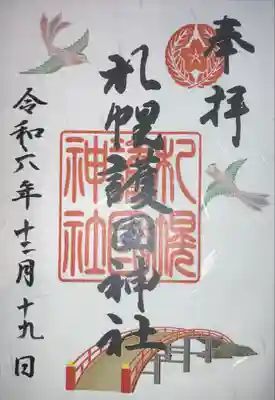 奉拝
札幌護國神社
札幌護國神社
令和六年十二月十九日